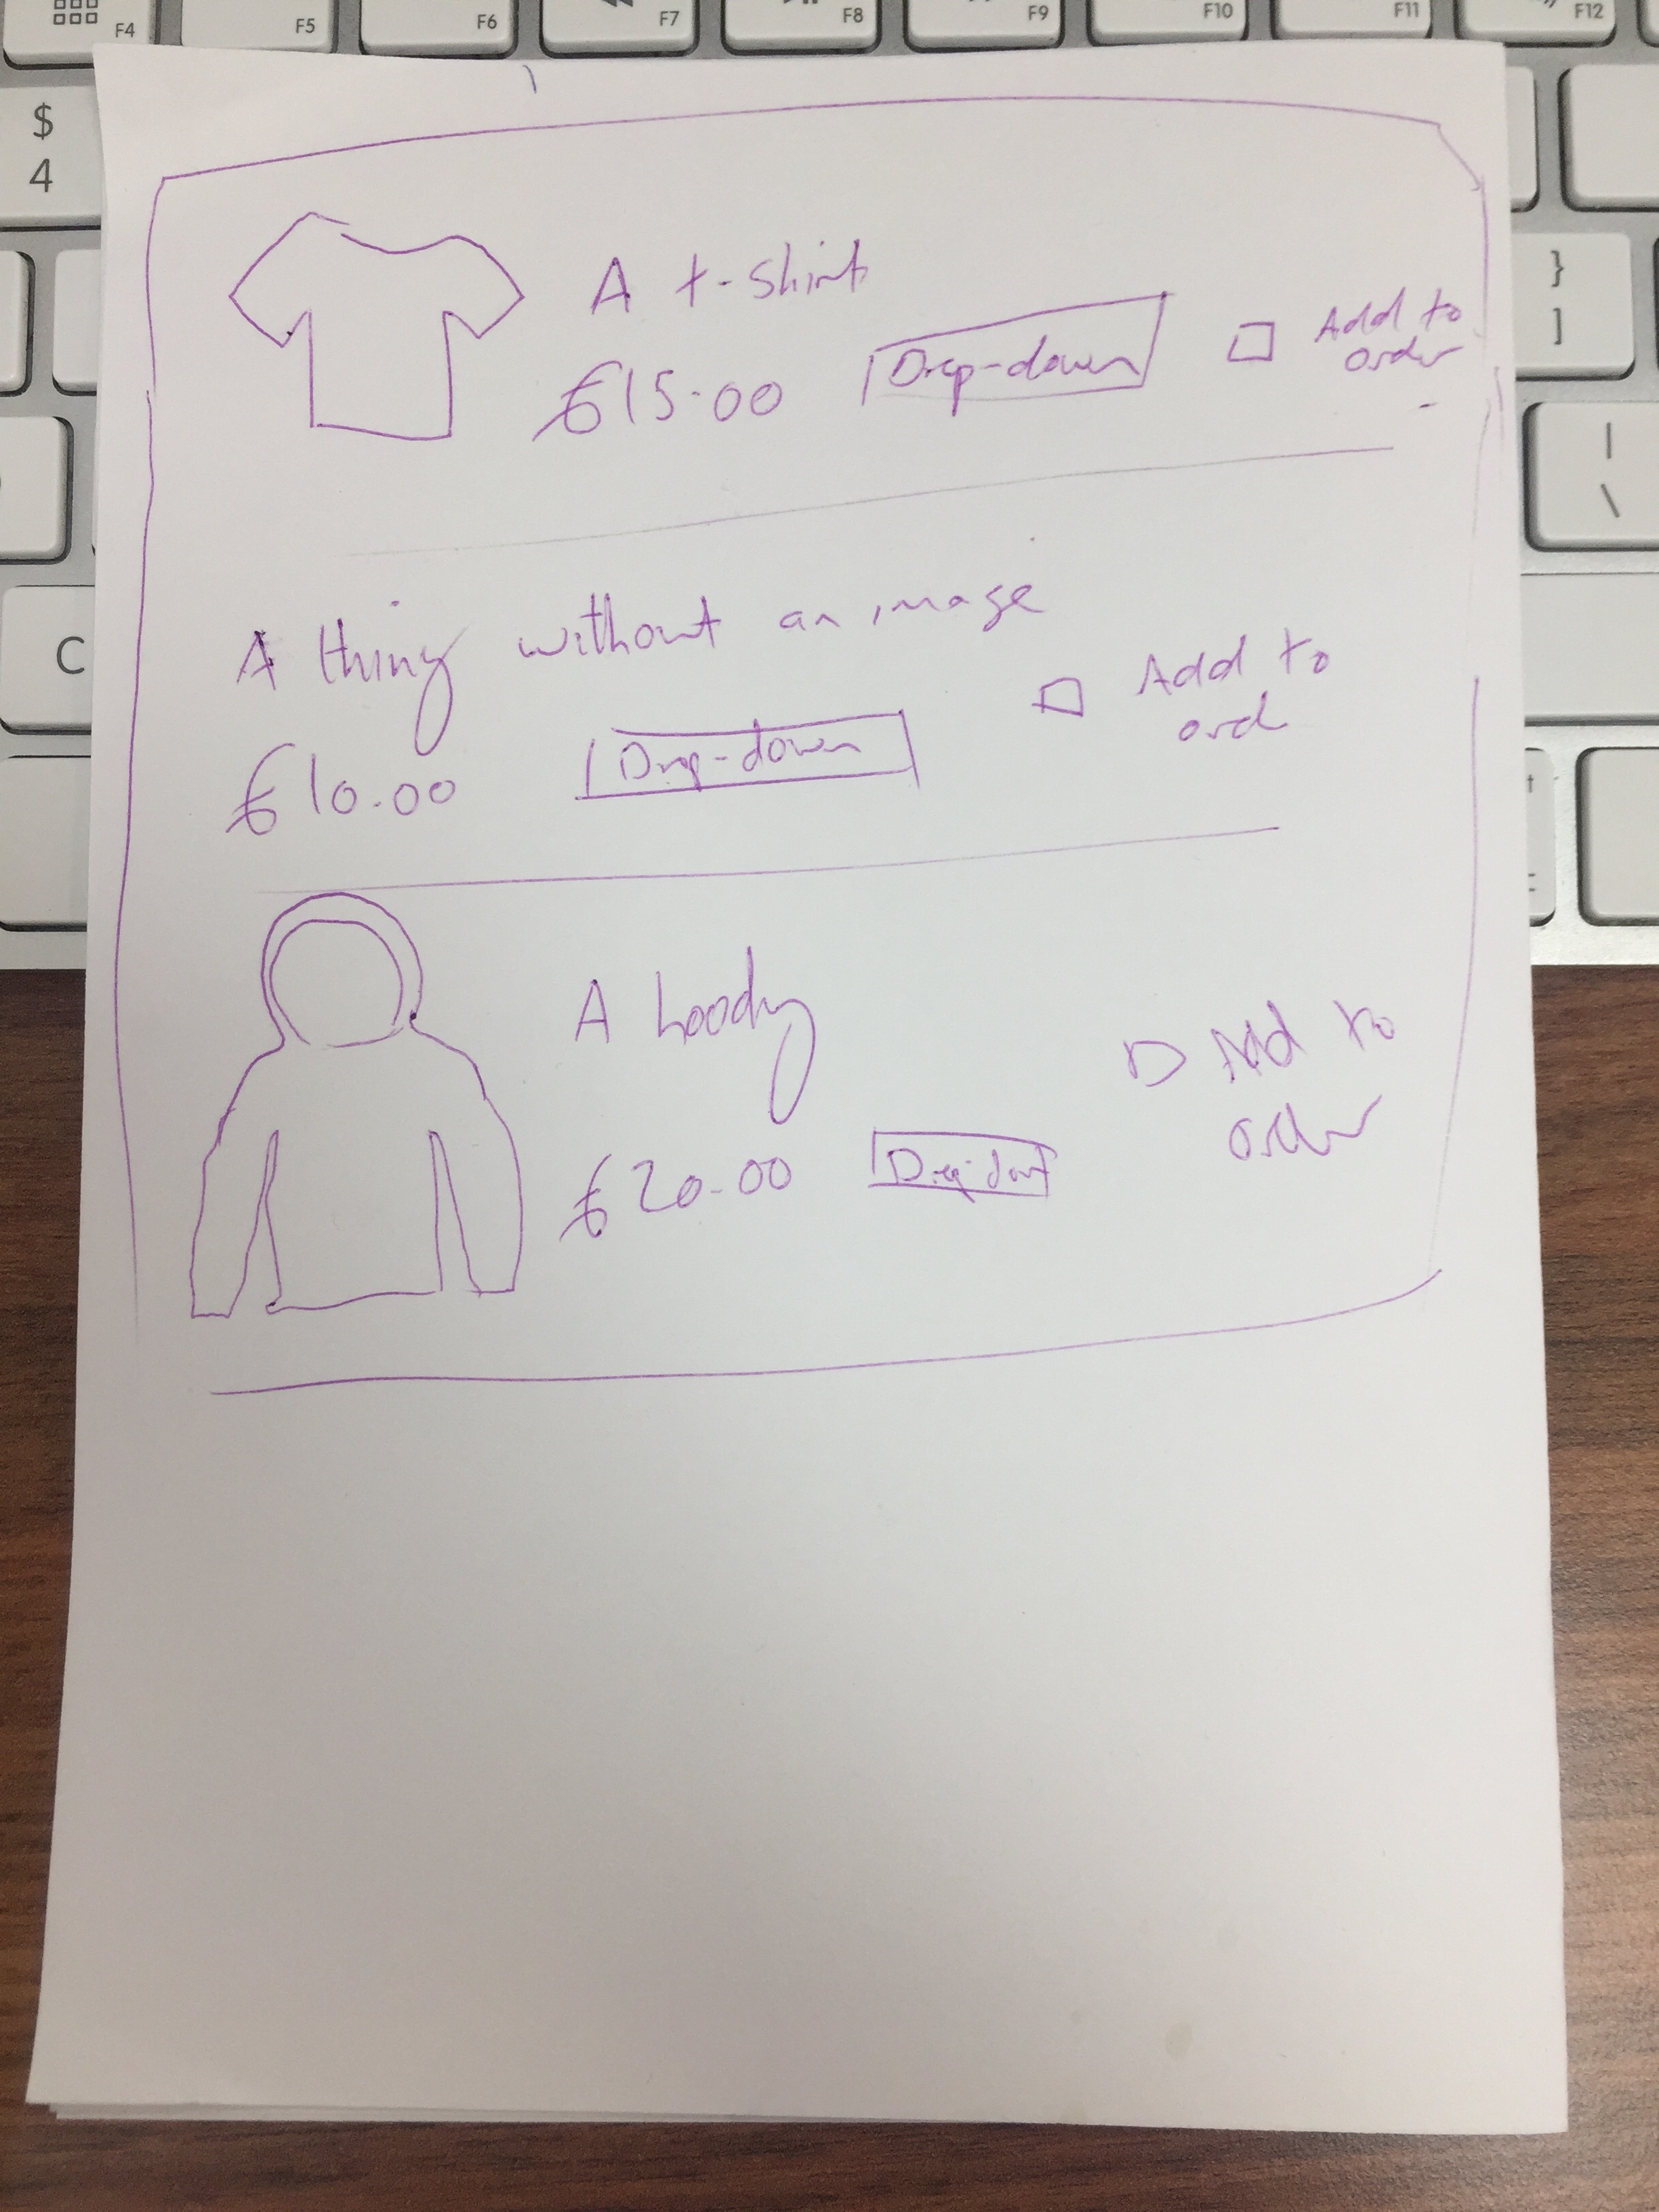 F4
F5
F6
F7
F8
F9
F10
F11
F12
$
4
}
]
|
\
C
A t-shirt
£15.00
Drop-down
Add to
order
A thing without an image
£10.00
Drop-down
Add to
ord
A hoody
£20.00
Add to
order